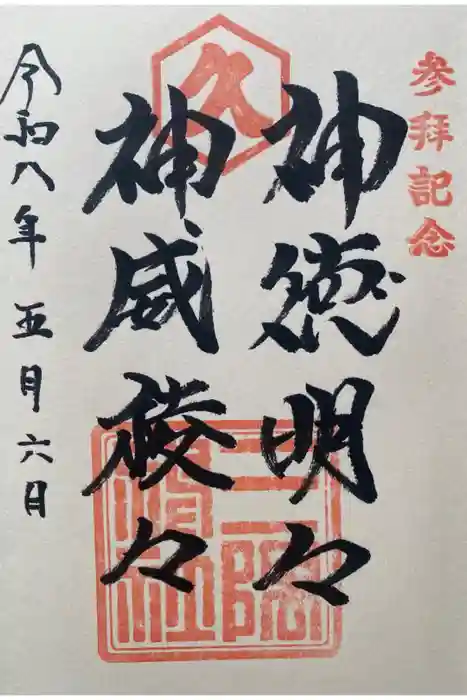 参拝記念
久
神徳明々
神威稜々
令和八年五月六日